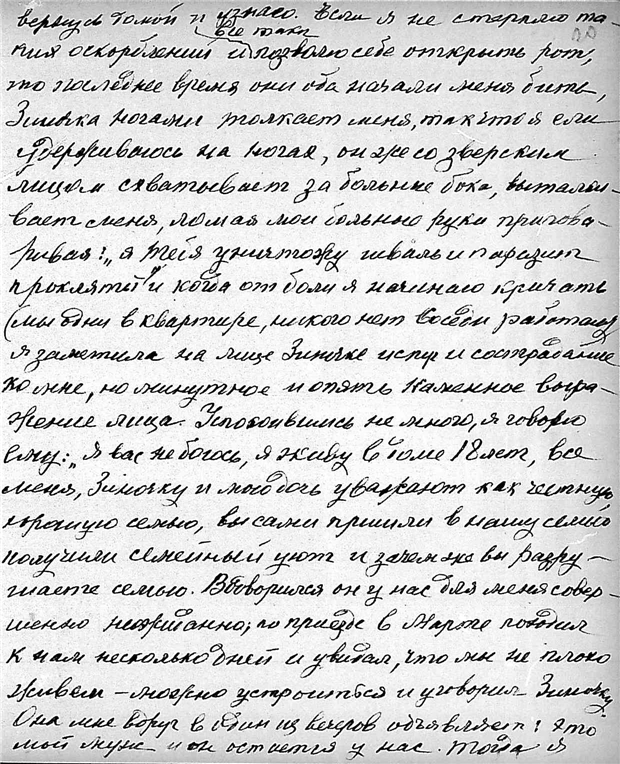 вернусь домой и узнаю. Если я не стерплю та-
кия оскорблений и все таки позволю себе открыть рот,
то последнее время они оба начали меня бить,
Зиночка ногами толкает меня, так что я еле
удерживаюсь на ногах, он же со зверским
лицом схватывает за больные бока, выталки-
вает меня, ломая мои больные руки пригова-
ривая: „я тебя уничтожу шваль и паразит
проклятый" и когда от боли я начинаю кричать
(мы одни в квартире, никого нет соседи работают)
я заметила на лице Зиночке испуг и сострадание
ко мне, но минутное и опять каменное выра-
жение лица. Успокоившись немного, я говорю
ему: „Я вас не боюсь, я живу в доме 18 лет, все
меня, Зиночку и мою дочь уважают как честную,
хорошую семью, вы сами пришли в нашу семью
получили семейный уют и зачем же вы разру-
шаете семью. Вговорился он у нас для меня совер-
шенно неожиданно; по приезде в Марте походил
к нам несколько дней и увидал, что мы не плохо
живем – можно устроиться и уговорил Зиночку.
Она мне вдруг в один из вечеров объявляет: это
мой муж и он остается у нас. Тогда я